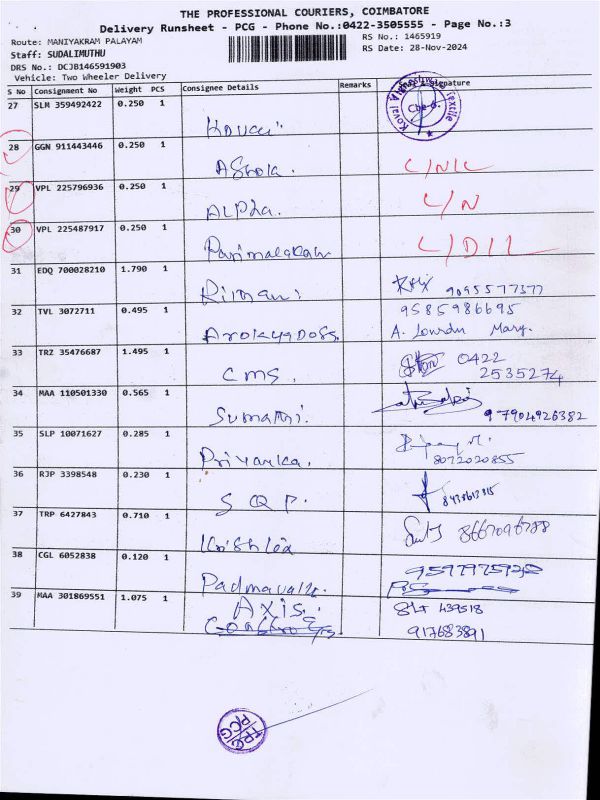 THE PROFESSIONAL COURIERS, COIMBATORE
Delivery Runsheet - PCG - Phone No.:0422-3505555 - Page No.:3
Route: MANIYAKRAM PALAYAM
RS No.: 1465919
Staff: SUDALIMUTHU
RS Date: 28-Nov-2024
DRS No.: DCJB146591903
Vehicle: Two Wheeler Delivery
S No Consignment No Weight PCS Consignee Details Remarks Signature
27 SLM 359492422 0.250 1 Kovai
28 GGN 911443446 0.250 1 Ashok. C/NIL
29 VPL 225796936 0.250 1 ALPha. L/N
30 VPL 225487917 0.250 1 Parimalakan L/DIL
31 EDQ 700028210 1.790 1 9095577377
32 TVL 3072711 0.495 1 Arokyadoss. 9585986695
A. Lourdu Mary.
33 TRZ 35476687 1.495 1 CMS. 0422
2535274
34 MAA 110501330 0.565 1 Sumathi. 97904926382
35 SLP 10071627 0.285 1 Priyanka. 8072020855
36 RJP 3398548 0.230 1 S Q P.
37 TRP 6427843 0.710 1 8667096788
38 CGL 6052838 0.120 1
39 MAA 301869551 1.075 1 AXIS. 439518
917683891
TPC
PCG